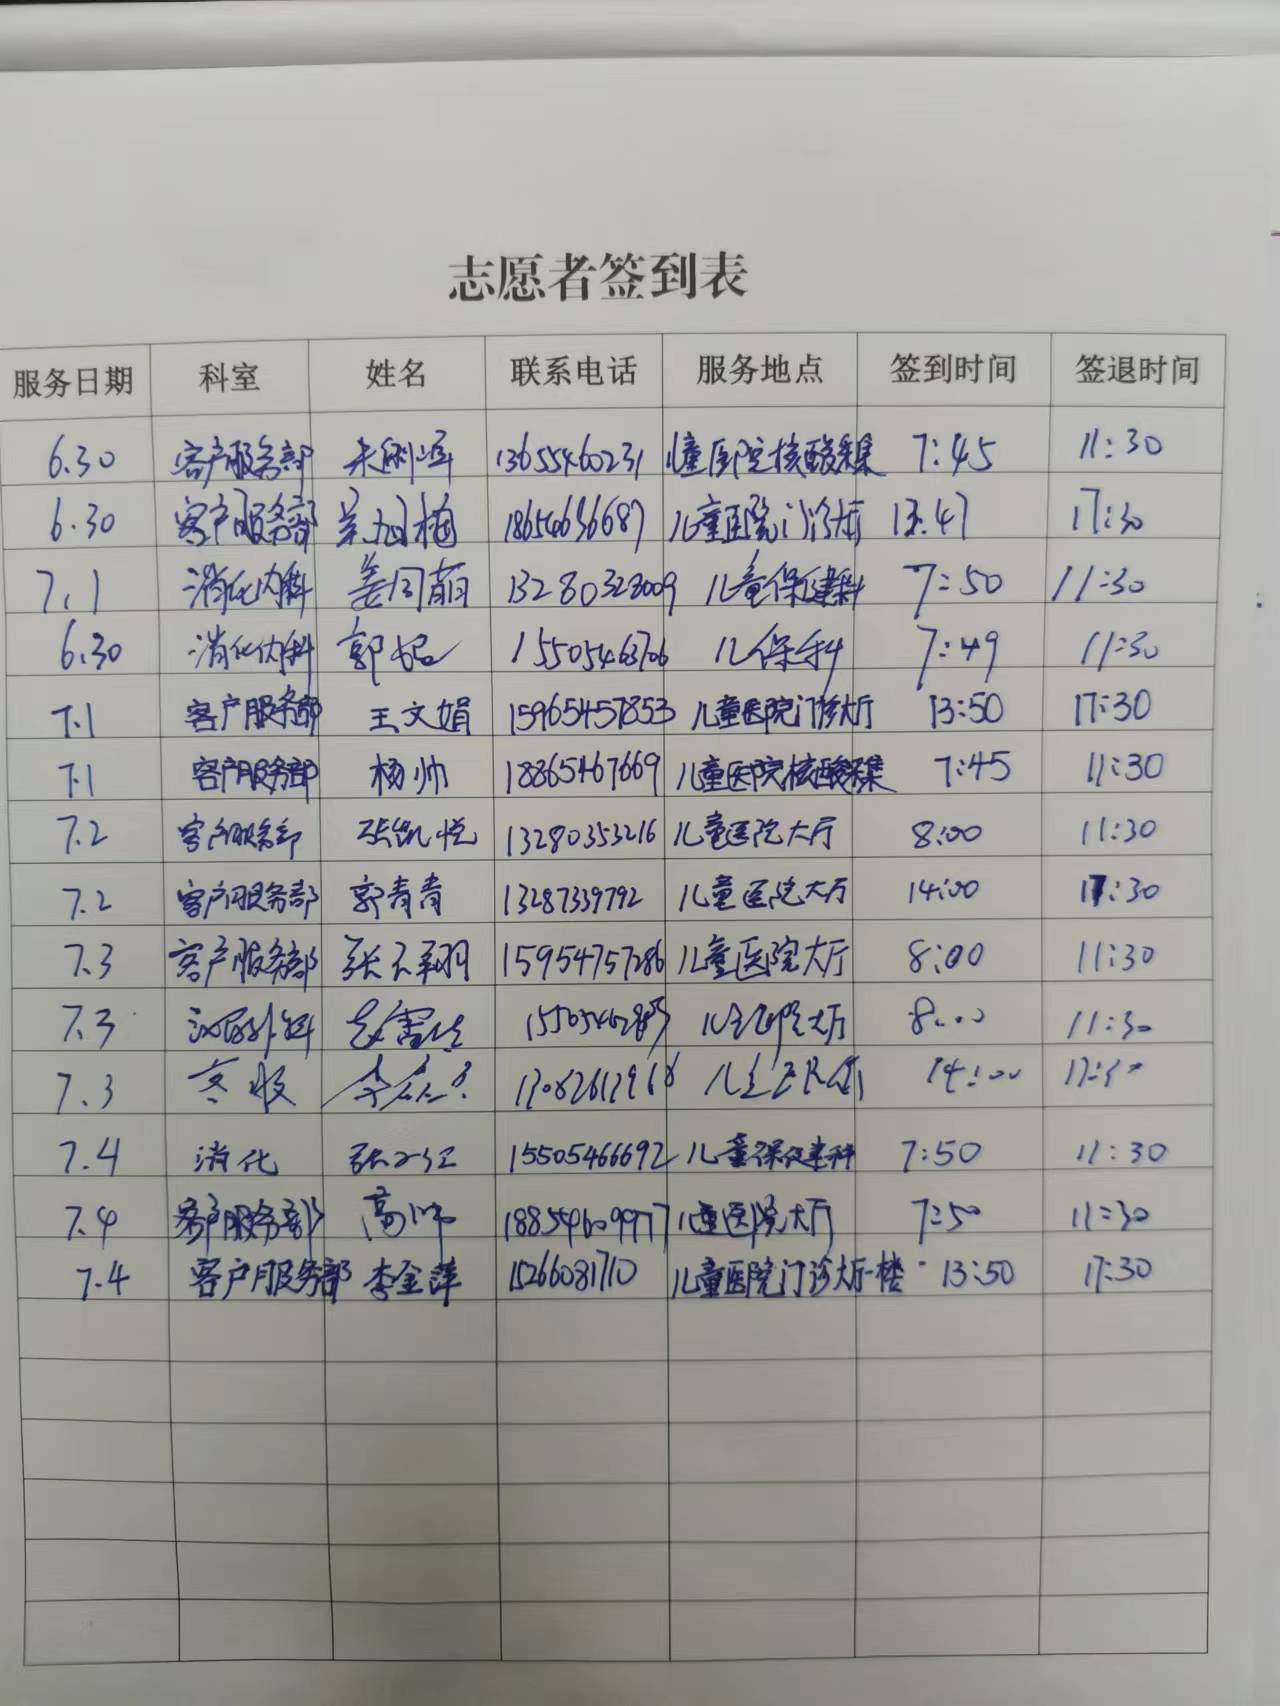 志愿者签到表
服务日期 科室 姓名 联系电话 服务地点 签到时间 签退时间
6.30 客户服务部 13655460231 儿童医院核酸采集 7:45 11:30
6.30 客户服务部 18654636687 儿童医院门诊大厅 13:47 17:30
7.1 消化内科 姜同萌 13280328009 儿童保健科 7:50 11:30
6.30 消化内科 郭 15505463706 儿保科 7:49 11:30
7.1 客户服务部 王文娟 15965457853 儿童医院门诊大厅 13:50 17:30
7.1 客户服务部 杨帅 18865467669 儿童医院核酸采集 7:45 11:30
7.2 客户服务部 张凯悦 13280353216 儿童医院大厅 8:00 11:30
7.2 客户服务部 郭青青 13287339792 儿童医院大厅 14:00 17:30
7.3 客户服务部 张天翔 15954757286 儿童医院大厅 8:00 11:30
7.3 泌尿外科 儿童医院大厅 8:00 11:30
7.3 14:00 17:30
7.4 消化 15505466692 儿童保健科 7:50 11:30
7.4 客户服务部 高帅 18854609977 儿童医院大厅 7:50 11:30
7.4 客户服务部 李金萍 15266081710 儿童医院门诊大厅一楼 13:50 17:30